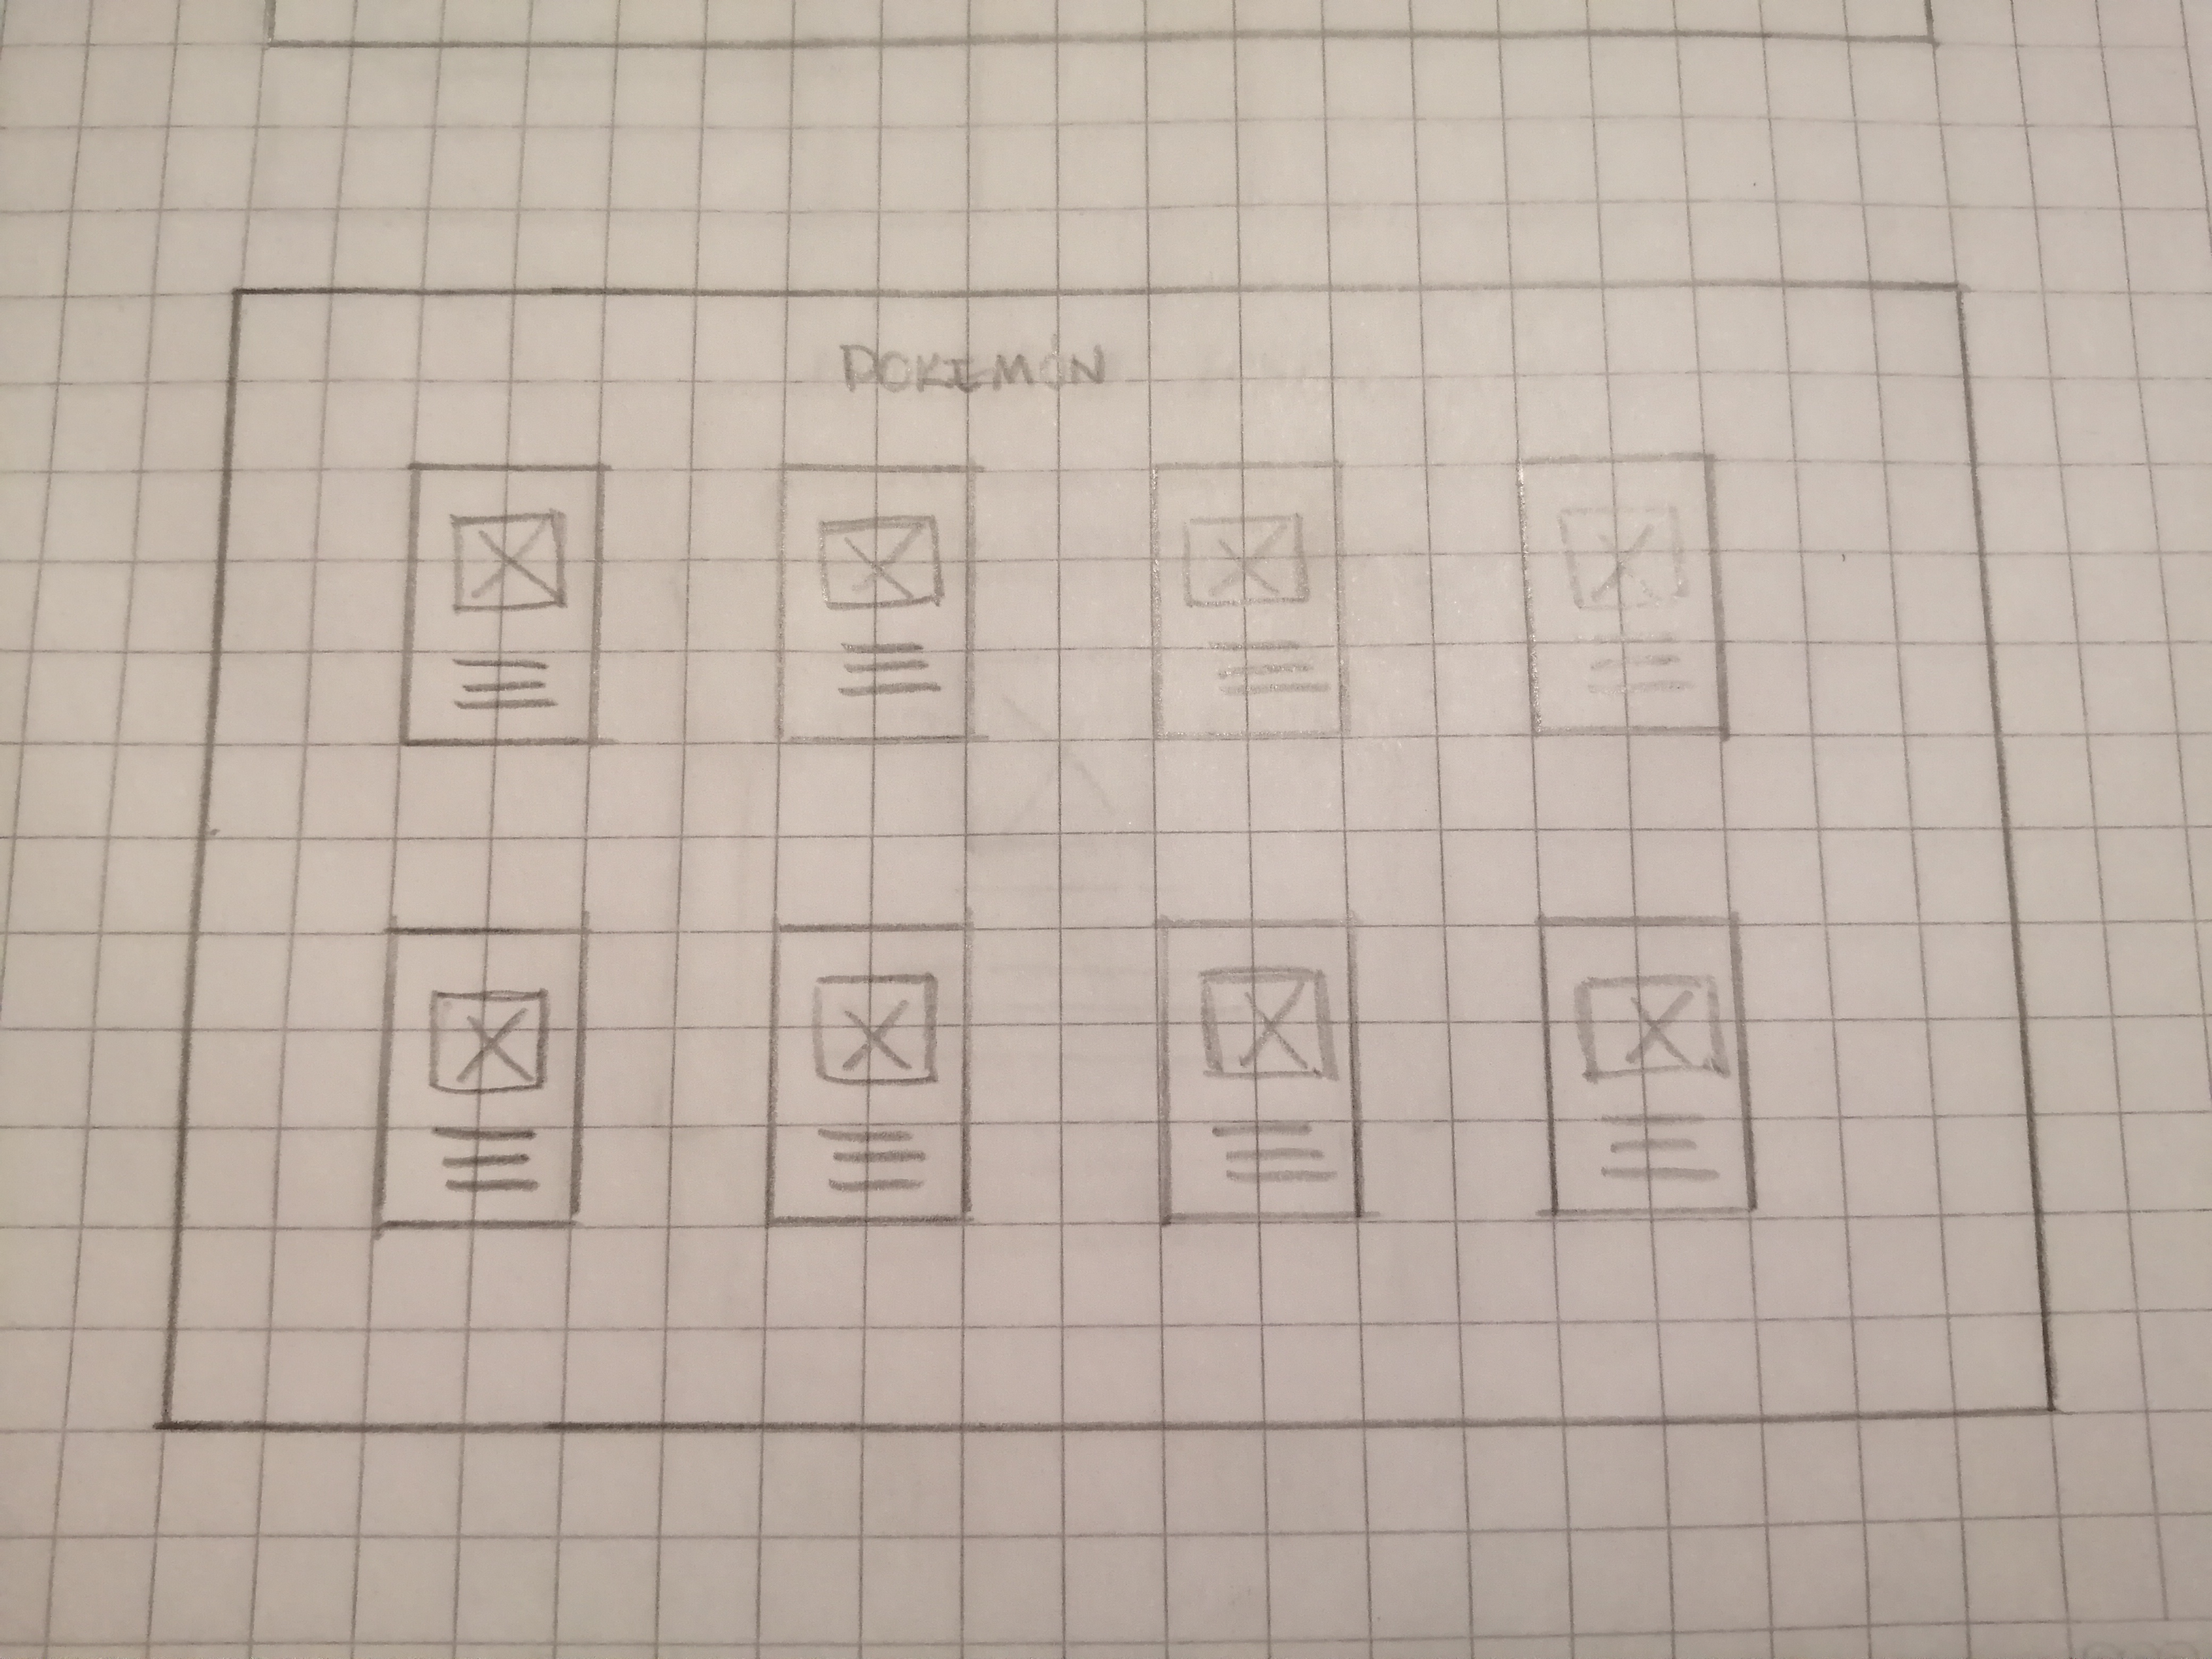 POKEMÓN